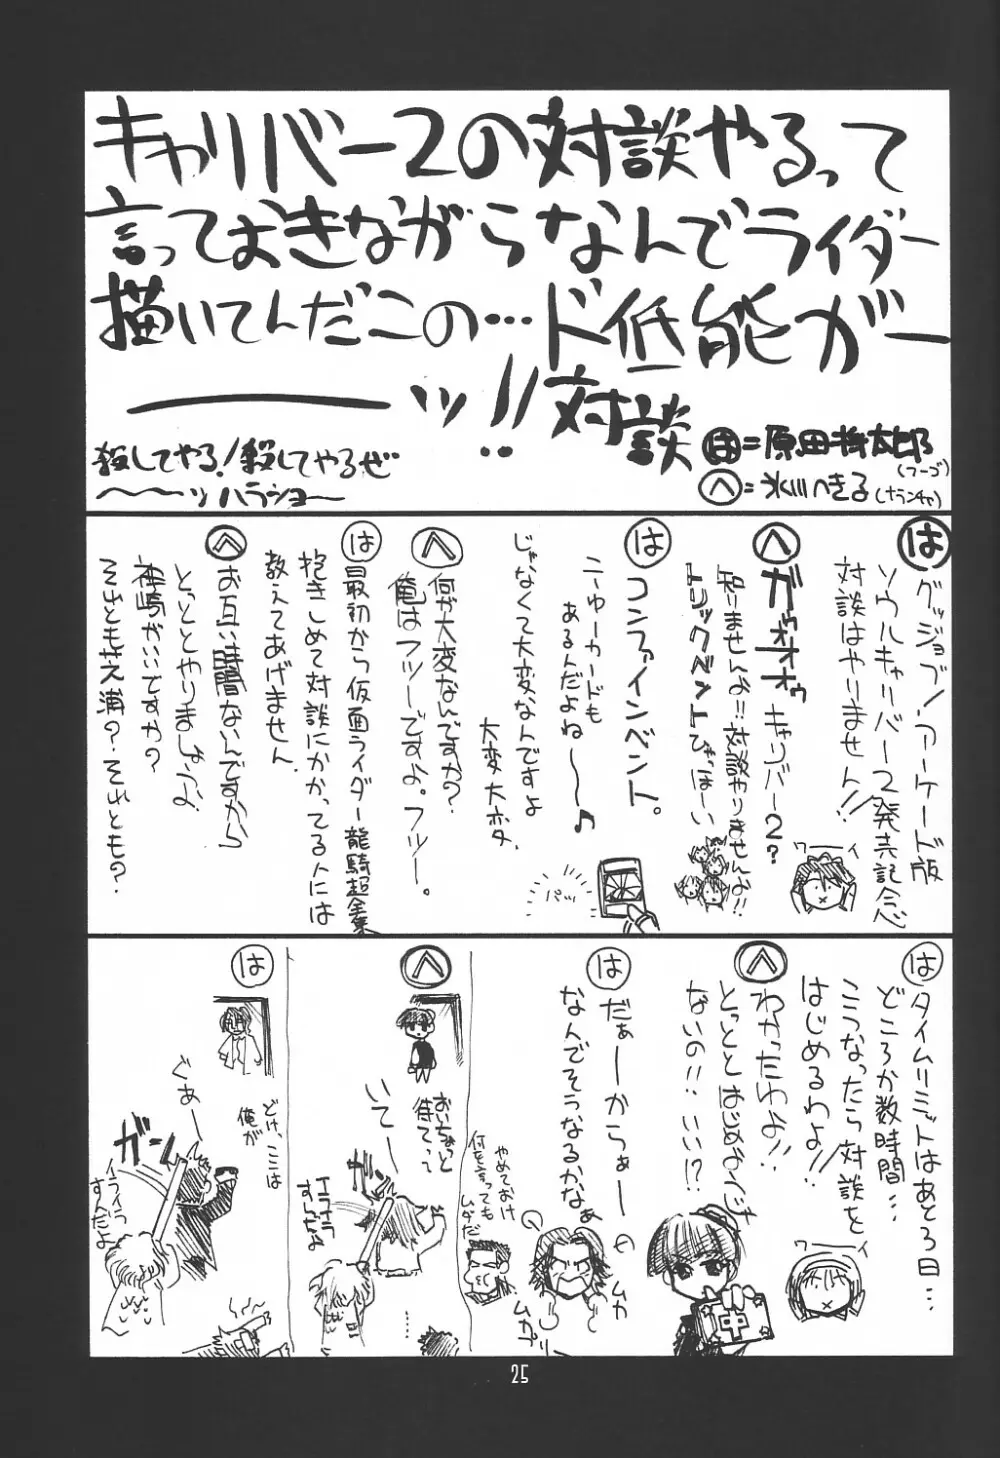 キャリバー2の対談やるって
言っておきながらなんでライダー
描いてんだこの…ド低能がー
━━━ッ!!対談
殺してやる!殺してやるぜ
〜〜〜ッハラショー
は=原田将太郎
(フーゴ)
へ=氷川へきる(ナランチャ)
は
グッジョブ!アーケード版
ソウルキャリバー2発売記念
対談はやりません!!
ワーイ
へ
ガゥオオオゥ キャリバー2?
知りませんよ!!対談やりませんよ!!
トリックベントびゃほーい
は
コンファインベント。
ニューカードも
あるんだよねー〜〜♪
じゃなくて大変なんですよ
大変大変
パッ
へ
何が大変なんですか?
俺はフツーですよ。フツー。
は
最初から仮面ライダー龍騎超全集
抱きしめて対談にかかってる人には
教えてあげません
へ
お互い時間ないんですから
とっととやりましょうよ
神崎がいいですか?
それとも芝浦?それとも?
は
タイムリミットはあと3日…
どころか数時間…
こうなったら対談を
はじめるわよ!!
ワーイ
へ
わかったわよ!!
とっととはじめればイイじゃ
ないの!!いい!?
中
は
だぁーからぁー
なんでそうなるかなぁ
ムカ
ムカッ
やめておけ
何を言っても
ムダだ
へ
おいちょっと
待てって
いてー
イライラ
すんだよ
は
どけ、ここは
俺が
ぐぁー
ガーン
イライラ
すんだよ
25